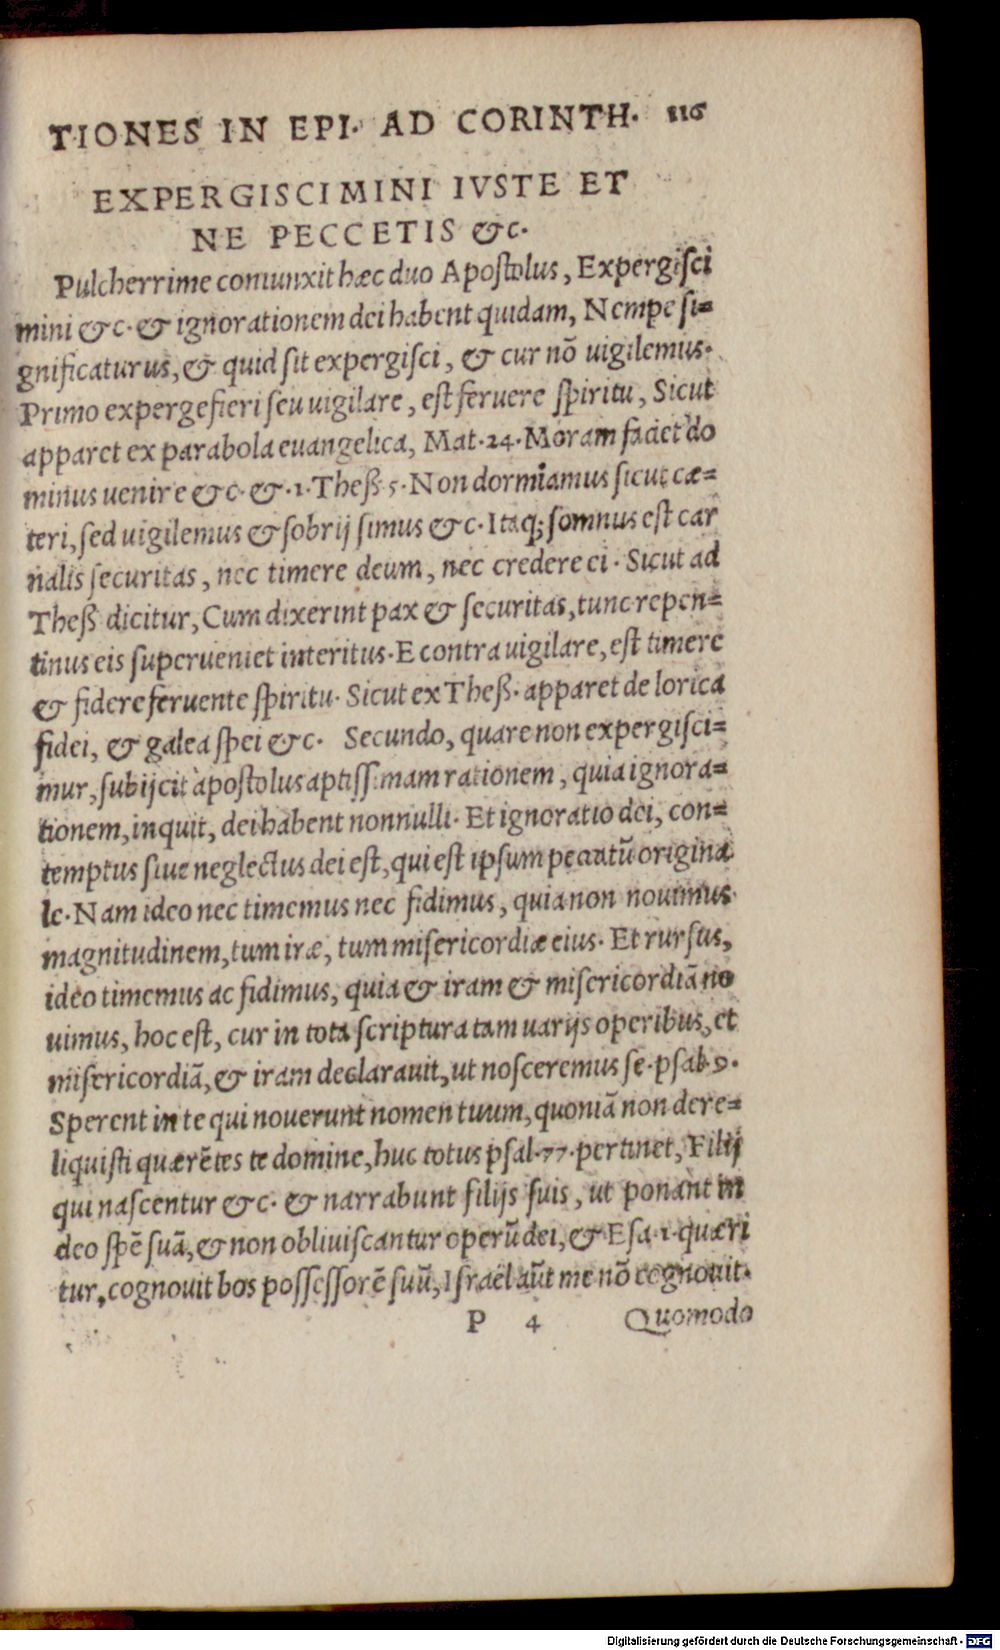 TIONES IN EPI. AD CORINTH. 116
EXPERGISCIMINI IVSTE ET
NE PECCETIS &c.
Pulcherrime coniunxit hæc duo Apostolus, Expergisci
mini &c. & ignorationem dei habent quidam, Nempe si=
gnificaturus, & quid sit expergisci, & cur nõ uigilemus.
Primo expergefieri seu uigilare, est feruere spiritu, Sicut
apparet ex parabola euangelica, Mat. 24. Moram faciet do
minus uenire &c. &. 1. Theß. 5. Non dormiamus sicut cæ=
teri, sed uigilemus & sobrij simus &c. Itaq; somnus est car
nalis securitas, nec timere deum, nec credere ei. Sicut ad
Theß dicitur, Cum dixerint pax & securitas, tunc repen=
tinus eis superueniet interitus. E contra uigilare, est timere
& fidere feruente spiritu. Sicut ex Theß. apparet de lorica
fidei, & galea spei &c. Secundo, quare non expergisci=
mur, subijcit apostolus aptissimam rationem, quia ignora=
tionem, inquit, dei habent nonnulli. Et ignoratio dei, con=
temptus siue neglectus dei est, qui est ipsum peccatũ origina
le. Nam ideo nec timemus nec fidimus, quia non nouimus
magnitudinem, tum iræ, tum misericordiæ eius. Et rursus,
ideo timemus ac fidimus, quia & iram & misericordiã no
uimus, hoc est, cur in tota scriptura tam uarijs operibus, et
misericordiã, & iram declarauit, ut nosceremus se. psal. 9.
Sperent in te qui nouerunt nomen tuum, quoniã non dere=
liquisti quærẽtes te domine, huc totus psal. 77. pertinet, Filij
qui nascentur &c. & narrabunt filijs suis, ut ponant in
deo spẽ suã, & non obliuiscantur operũ dei, & Esa. 1. quæri
tur, cognouit bos possessorẽ suũ, Israel aũt me nõ cognouit.
P 4 Quomodo
Digitalisierung gefördert durch die Deutsche Forschungsgemeinschaft - DFG